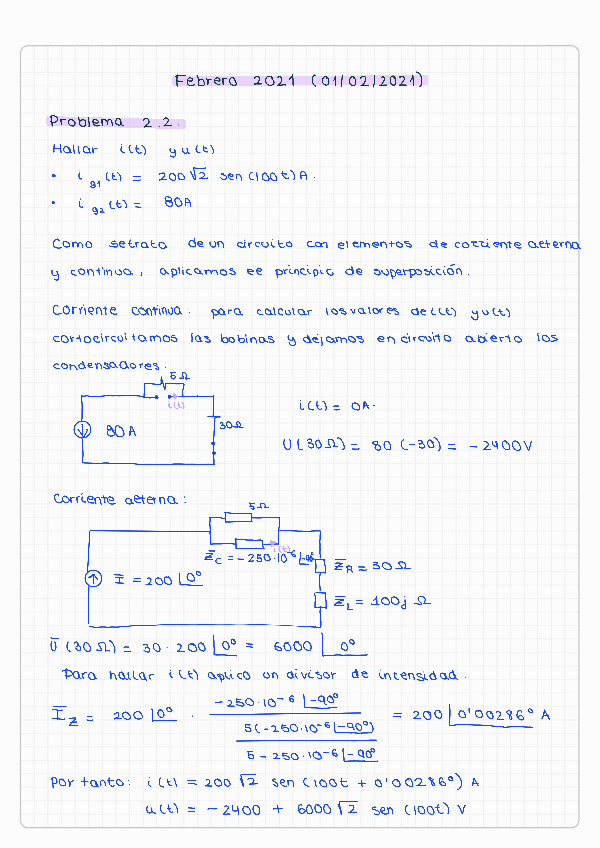 Febrero 2021 (01/02/2021)
Problema 2.2.
Hallar i(t) y u(t)
• i g1 (t) = 200√2 sen (100t) A.
• i g2 (t) = 80A
Como se trata de un circuito con elementos de corriente alterna
y continua, aplicamos el principio de superposición.
Corriente continua. para calcular los valores de i(t) y u(t)
cortocircuitamos las bobinas y dejamos en circuito abierto los
condensadores.
5Ω
i(t)
80A
30Ω
i(t) = 0A.
U(30Ω) = 80 (-30) = -2400V
Corriente alterna:
5Ω
i(t)
Z̄c = -250·10⁻⁶ |-90°
Ī = 200 |0°
Z̄R = 30Ω
Z̄L = 100j Ω
Ū(30Ω) = 30·200 |0° = 6000 |0°
Para hallar i(t) aplico un divisor de intensidad.
Īz = 200 |0° · -250·10⁻⁶ |-90° / 5(-250·10⁻⁶ |-90°) / 5-250·10⁻⁶ |-90° = 200 |0'00286° A
Por tanto: i(t) = 200√2 sen (100t + 0'00286°) A
u(t) = -2400 + 6000√2 sen (100t) V